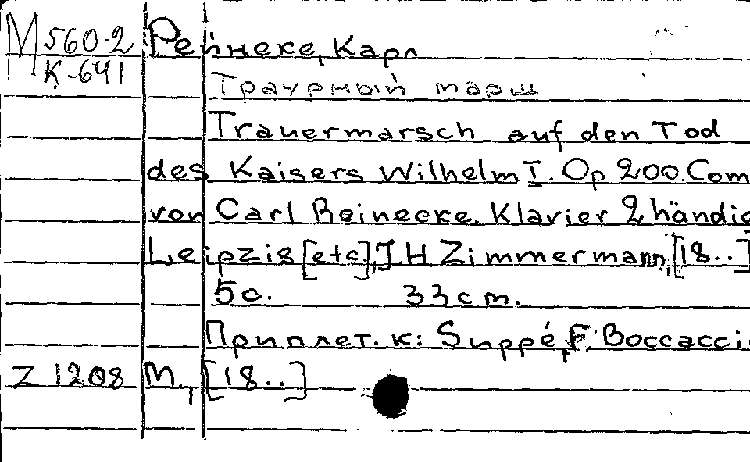 М 560-2 Рейнеке, Карл
К-641
Траурный марш
Trauermarsch auf den Tod
des Kaisers Wilhelm I. Op 200. Com
von Carl Reinecke. Klavier 2 händig
Leipzig [etc], J H Zimmermann, [18..]
5 с. 33 cm.
Приплет. к: Suppé, F. Boccacci
Z 1208 М., [18..]